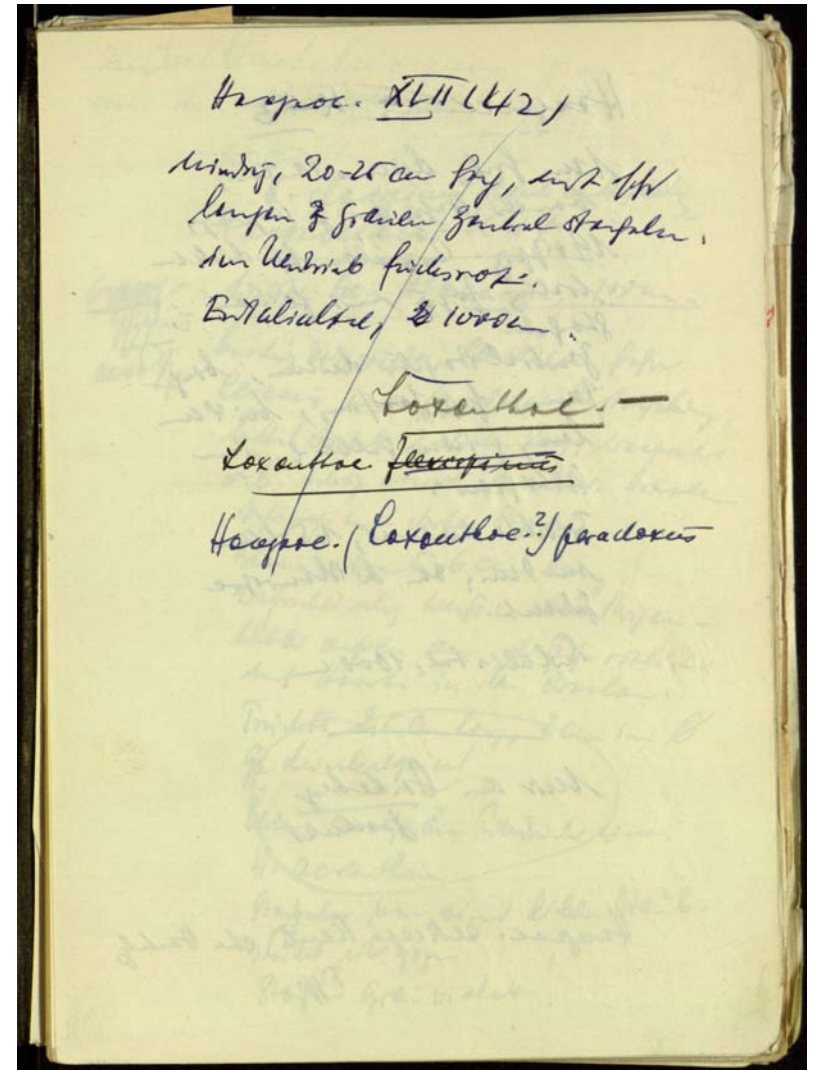 Haageoc. XLII (42)
niedrig, 20-25 cm hoch, mit sehr
langen grauen Zentralstacheln.
im Neutrieb fuchsrot.
Eulaliatal, 1000 m.
Loxanthoc. —
Loxanthoc.
Haageoc. (Loxanthoc.?) paradoxus